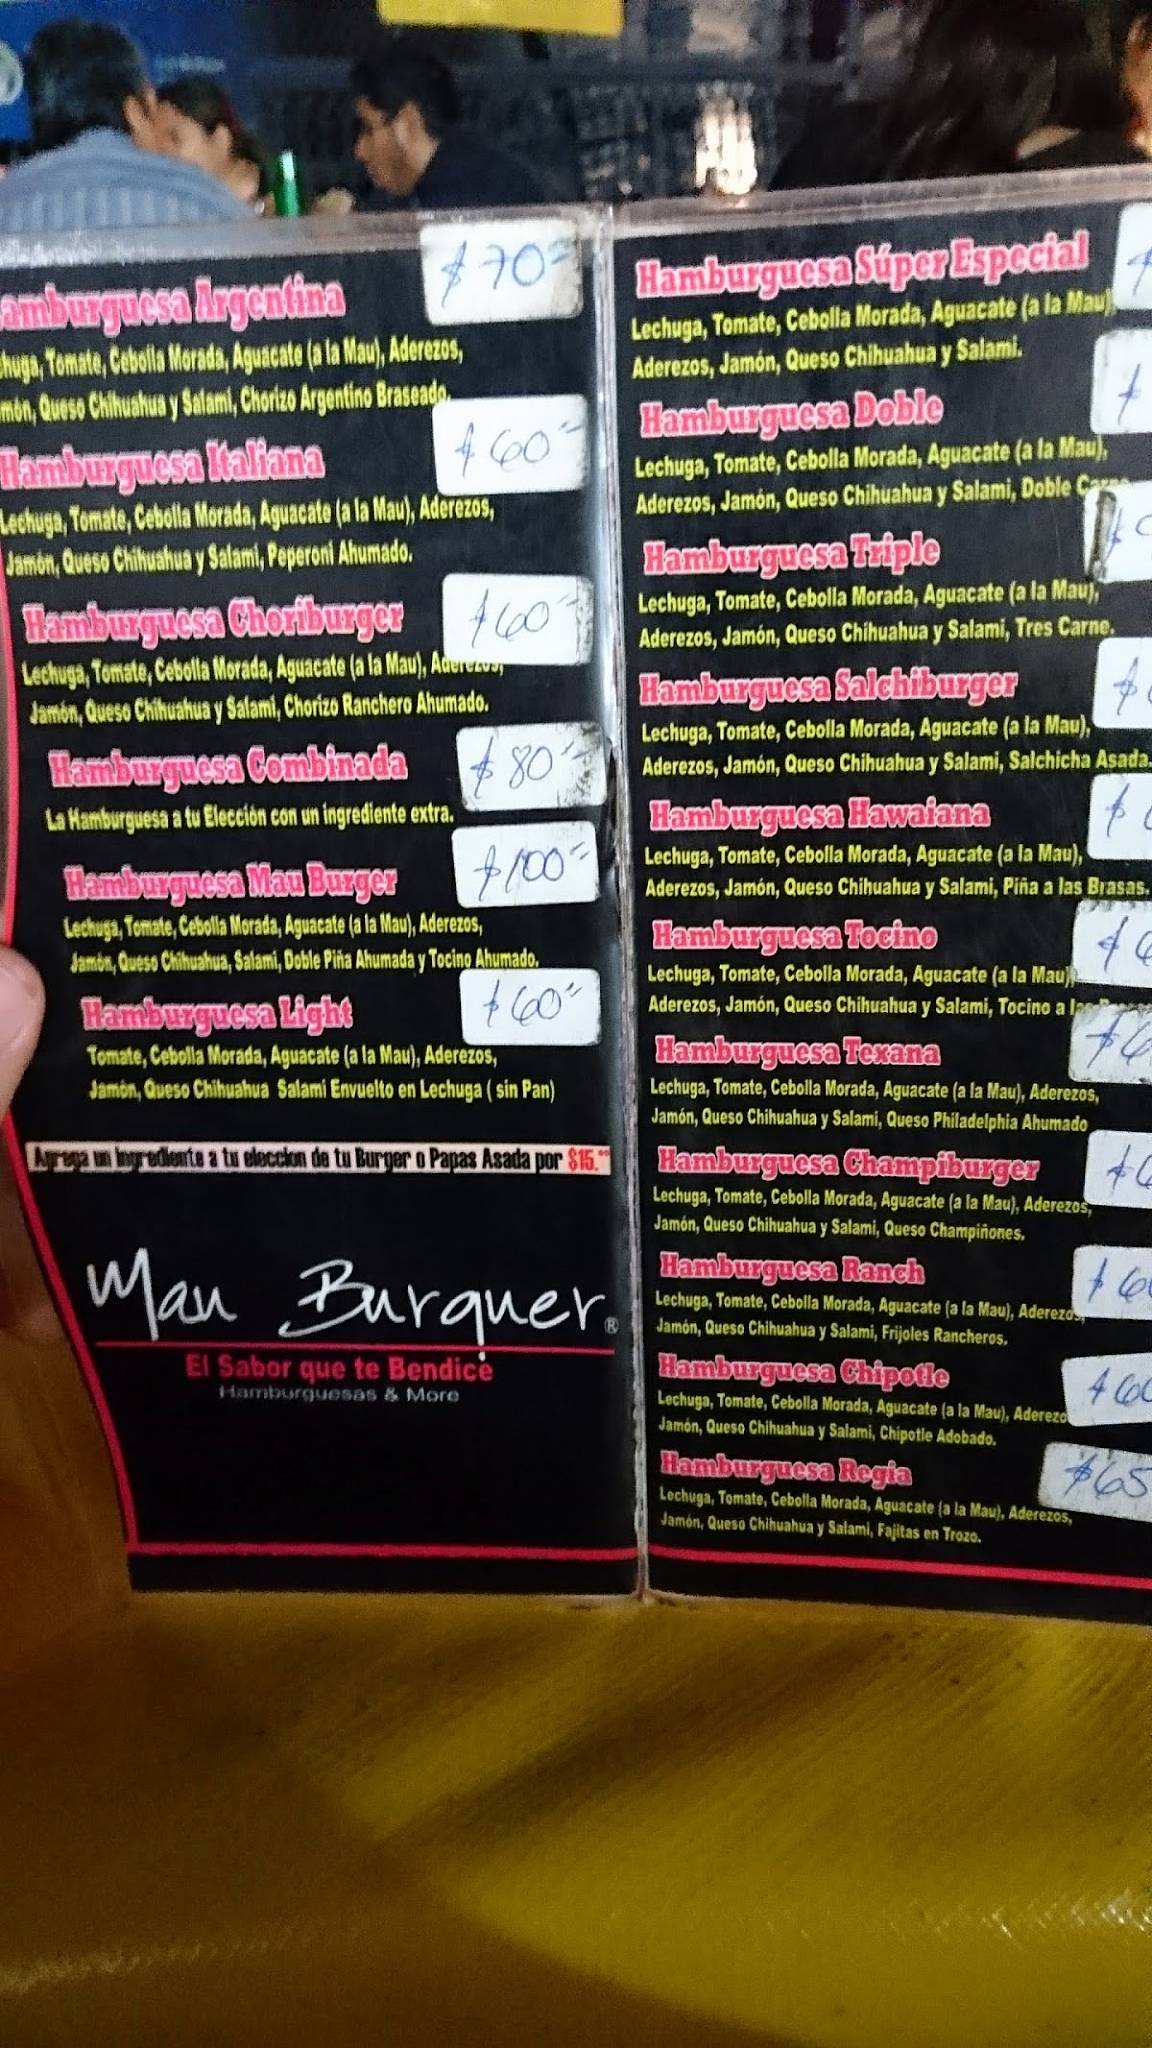 $70=
amburguesa Argentina
huga, Tomate, Cebolla Morada, Aguacate (a la Mau), Aderezos,
món, Queso Chihuahua y Salami, Chorizo Argentino Braseado.
$60=
Hamburguesa Italiana
Lechuga, Tomate, Cebolla Morada, Aguacate (a la Mau), Aderezos,
Jamón, Queso Chihuahua y Salami, Peperoni Ahumado.
$60=
Hamburguesa Choriburger
Lechuga, Tomate, Cebolla Morada, Aguacate (a la Mau), Aderezos,
Jamón, Queso Chihuahua y Salami, Chorizo Ranchero Ahumado.
Hamburguesa Combinada $80=
La Hamburguesa a tu Elección con un ingrediente extra.
Hamburguesa Mau Burger $100=
Lechuga, Tomate, Cebolla Morada, Aguacate (a la Mau), Aderezos,
Jamón, Queso Chihuahua, Salami, Doble Piña Ahumada y Tocino Ahumado.
Hamburguesa Light $60=
Tomate, Cebolla Morada, Aguacate (a la Mau), Aderezos,
Jamón, Queso Chihuahua Salami Envuelto en Lechuga ( sin Pan)
Agrega un ingrediente a tu eleccion de tu Burger o Papas Asada por $15.00
Mau Burguer®
El Sabor que te Bendice
Hamburguesas & More
Hamburguesa Súper Especial $
Lechuga, Tomate, Cebolla Morada, Aguacate (a la Mau)
Aderezos, Jamón, Queso Chihuahua y Salami.
Hamburguesa Doble $
Lechuga, Tomate, Cebolla Morada, Aguacate (a la Mau),
Aderezos, Jamón, Queso Chihuahua y Salami, Doble Carne
Hamburguesa Triple $
Lechuga, Tomate, Cebolla Morada, Aguacate (a la Mau),
Aderezos, Jamón, Queso Chihuahua y Salami, Tres Carne.
Hamburguesa Salchiburger $
Lechuga, Tomate, Cebolla Morada, Aguacate (a la Mau),
Aderezos, Jamón, Queso Chihuahua y Salami, Salchicha Asada.
Hamburguesa Hawaiana $
Lechuga, Tomate, Cebolla Morada, Aguacate (a la Mau),
Aderezos, Jamón, Queso Chihuahua y Salami, Piña a las Brasas.
Hamburguesa Tocino $6
Lechuga, Tomate, Cebolla Morada, Aguacate (a la Mau)
Aderezos, Jamón, Queso Chihuahua y Salami, Tocino a las
Hamburguesa Texana $6
Lechuga, Tomate, Cebolla Morada, Aguacate (a la Mau), Aderezos,
Jamón, Queso Chihuahua y Salami, Queso Philadelphia Ahumado
Hamburguesa Champiburger $6
Lechuga, Tomate, Cebolla Morada, Aguacate (a la Mau), Aderezos,
Jamón, Queso Chihuahua y Salami, Queso Champiñones.
Hamburguesa Ranch $60
Lechuga, Tomate, Cebolla Morada, Aguacate (a la Mau), Aderezos,
Jamón, Queso Chihuahua y Salami, Frijoles Rancheros.
Hamburguesa Chipotle $60
Lechuga, Tomate, Cebolla Morada, Aguacate (a la Mau), Aderezo
Jamón, Queso Chihuahua y Salami, Chipotle Adobado.
Hamburguesa Regia $65
Lechuga, Tomate, Cebolla Morada, Aguacate (a la Mau), Aderezos,
Jamón, Queso Chihuahua y Salami, Fajitas en Trozo.